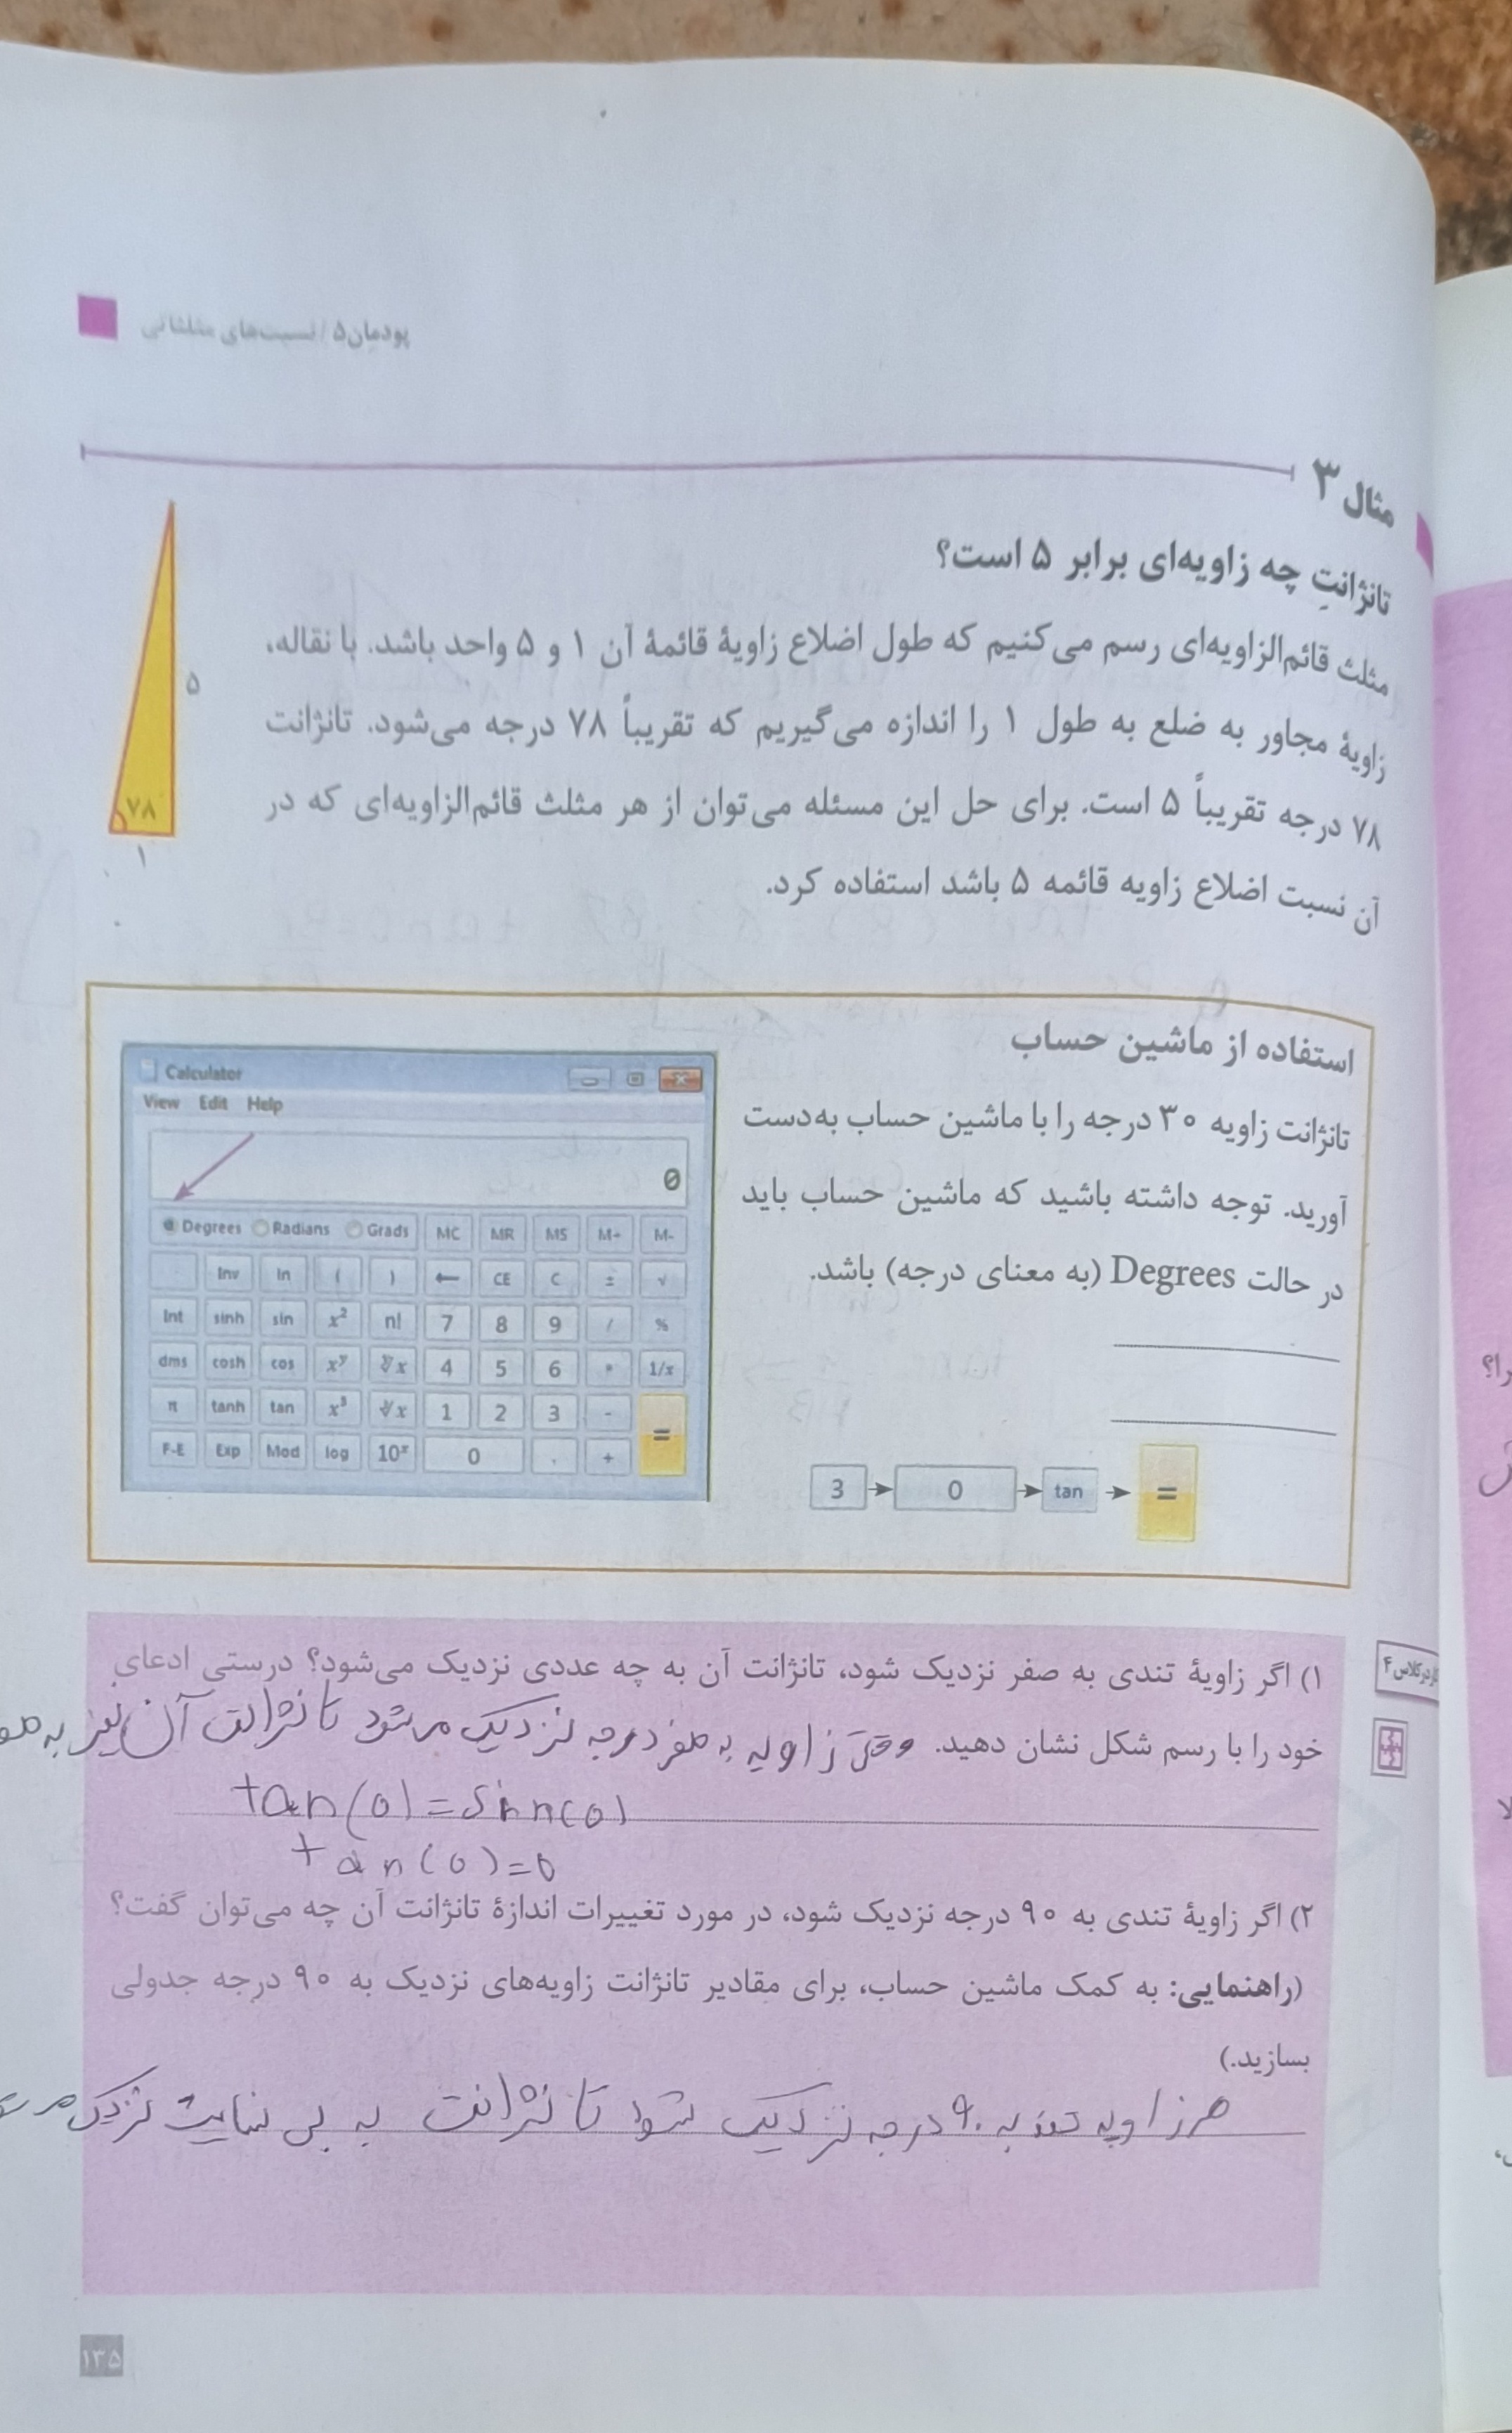 پودمان ۵ / نسبت‌های مثلثاتی
مثال ۳
تانژانتِ چه زاویه‌ای برابر ۵ است؟
مثلث قائم‌الزاویه‌ای رسم می‌کنیم که طول اضلاع زاویهٔ قائمهٔ آن ۱ و ۵ واحد باشد. با نقاله،
زاویهٔ مجاور به ضلع به طول ۱ را اندازه می‌گیریم که تقریباً ۷۸ درجه می‌شود. تانژانت
۷۸ درجه تقریباً ۵ است. برای حل این مسئله می‌توان از هر مثلث قائم‌الزاویه‌ای که در
آن نسبت اضلاع زاویه قائمه ۵ باشد استفاده کرد.
۵
۷۸
۱
استفاده از ماشین حساب
تانژانت زاویه ۳۰ درجه را با ماشین حساب به‌دست
آورید. توجه داشته باشید که ماشین حساب باید
در حالت Degrees (به معنای درجه) باشد.
3 0 tan =
Calculator
View Edit Help
0
Degrees Radians Grads MC MR MS M+ M-
Inv ln ( ) ← CE C ± √
Int sinh sin x² n! 7 8 9 / %
dms cosh cos xʸ ʸ√x 4 5 6 * 1/x
π tanh tan x³ ³√x 1 2 3 - =
F-E Exp Mod log 10ˣ 0 . +
کار در کلاس ۴
۱) اگر زاویهٔ تندی به صفر نزدیک شود، تانژانت آن به چه عددی نزدیک می‌شود؟ درستی ادعای
خود را با رسم شکل نشان دهید. وقتی زاویه به صفر درجه نزدیک می‌شود تانژانت آن نیز به
tan(0)=sin(0)
tan(0)=0
۲) اگر زاویهٔ تندی به ۹۰ درجه نزدیک شود، در مورد تغییرات اندازهٔ تانژانت آن چه می‌توان گفت؟
(راهنمایی: به کمک ماشین حساب، برای مقادیر تانژانت زاویه‌های نزدیک به ۹۰ درجه جدولی
بسازید.)
هر زاویه تند به ۹۰ درجه نزدیک شود تانژانت به بی نهایت نزدیک
۱۳۵